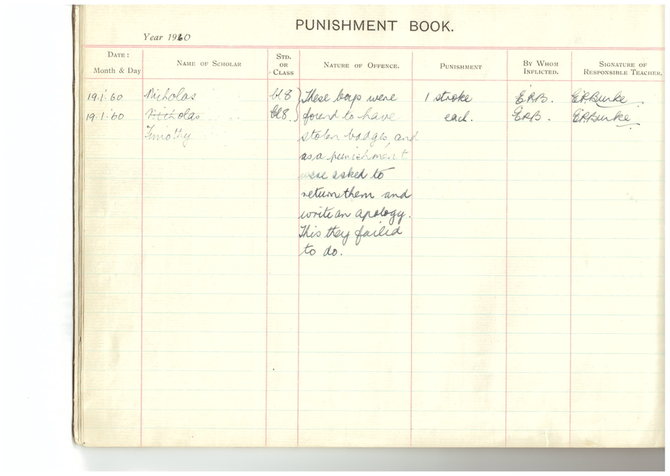 PUNISHMENT BOOK.
Year 1960
DATE: Month & Day
NAME OF SCHOLAR
STD. OR CLASS
NATURE OF OFFENCE.
PUNISHMENT
BY WHOM INFLICTED.
SIGNATURE OF RESPONSIBLE TEACHER.
19.1.60 Nicholas These boys were 1 stroke E.R.B. E R Burke.
19.1.60 Nicholas found to have each. E.R.B. E R Burke.
Timothy stolen badges, and
as a punishment
were asked to
return them and
write an apology.
This they failed
to do.